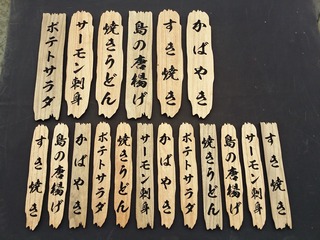 ポテトサラダ
サーモン刺身
焼きうどん
鳥の唐揚げ
すき焼き
かばやき
すき焼き
鳥の唐揚げ
かばやき
ポテトサラダ
焼きうどん
サーモン刺身
かばやき
ポテトサラダ
焼きうどん
鳥の唐揚げ
サーモン刺身
すき焼き